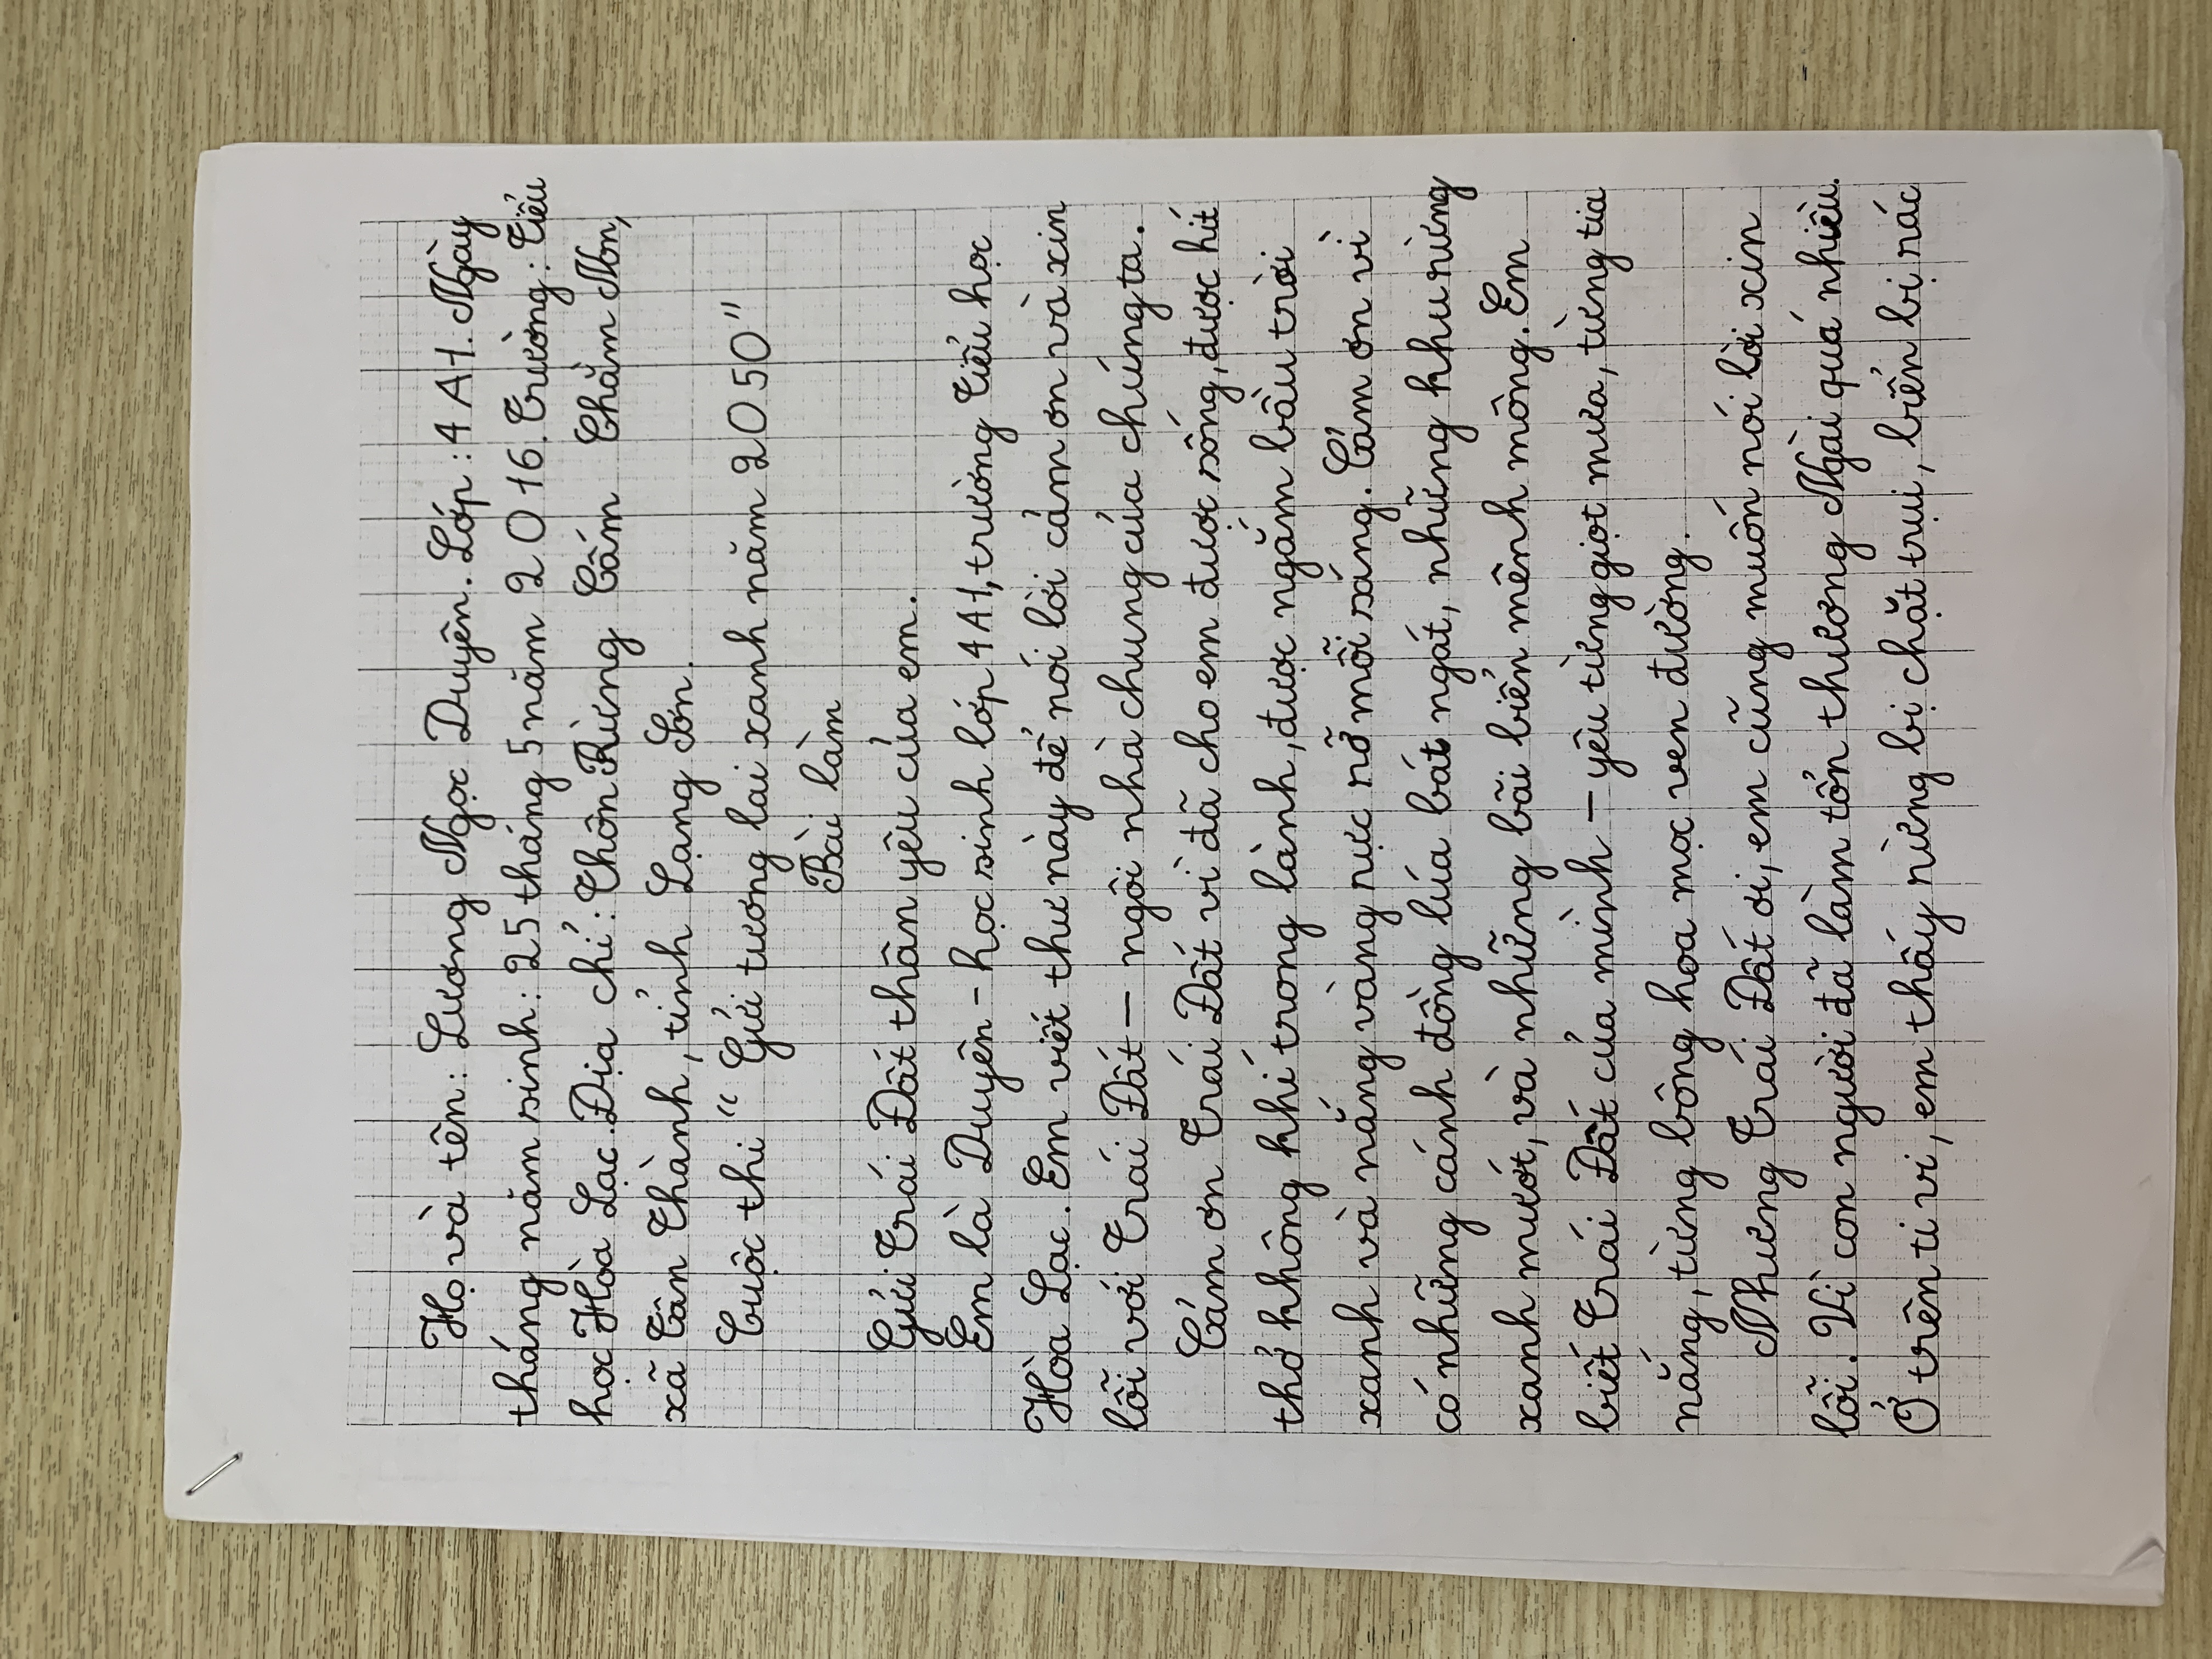 Họ và tên: Lương Ngọc Duyên. Lớp: 4A1. Ngày
tháng năm sinh: 25 tháng 5 năm 2016. Trường: Tiểu
học Hòa Lạc. Địa chỉ: Thôn Rừng Cấm Thằm Non,
xã Tân Thành, tỉnh Lạng Sơn.
Cuộc thi "Gửi tương lai xanh năm 2050"
Bài làm
Gửi Trái Đất thân yêu của em.
Em là Duyên - học sinh lớp 4A1, trường Tiểu học
Hòa Lạc. Em viết thư này để nói lời cảm ơn và xin
lỗi với Trái Đất - ngôi nhà chung của chúng ta.
Cảm ơn Trái Đất vì đã cho em được sống, được hít
thở không khí trong lành, được ngắm bầu trời
xanh và nắng vàng rực rỡ mỗi sáng. Cảm ơn vì
có những cánh đồng lúa bát ngát, những khu rừng
xanh mướt, và những bãi biển mênh mông. Em
biết Trái Đất của mình - yêu từng giọt mưa, từng tia
nắng, từng bông hoa mọc ven đường.
Nhưng Trái Đất ơi, em cũng muốn nói lời xin
lỗi. Vì con người đã làm tổn thương Ngài quá nhiều.
Ở trên ti vi, em thấy rừng bị chặt trụi, biển bị rác